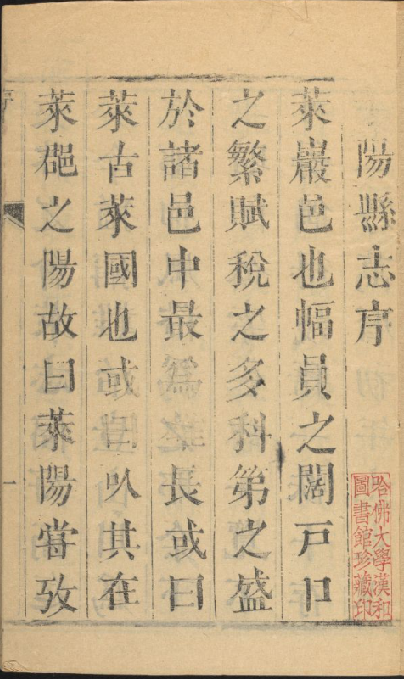 陽縣志序
萊巖邑也幅員之闊戸口
之繁賦稅之多科第之盛
於諸邑中最爲長或曰
萊古萊國也或㕥其在
萊之陽故曰萊陽嘗攷
一
哈佛大學漢和
圖書館珍藏印